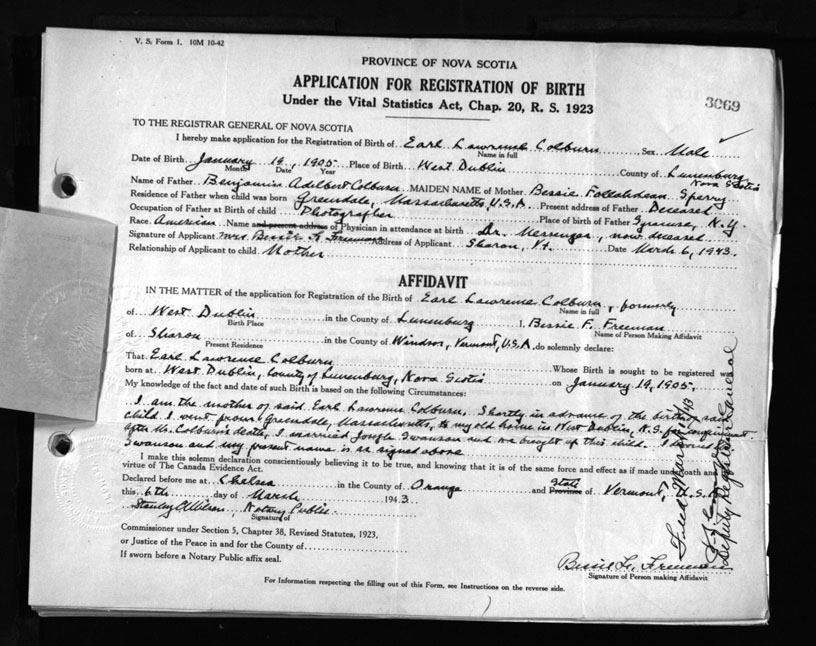 V. S. Form 1. 10M 10-42
PROVINCE OF NOVA SCOTIA
APPLICATION FOR REGISTRATION OF BIRTH
Under the Vital Statistics Act, Chap. 20, R. S. 1923
3069
TO THE REGISTRAR GENERAL OF NOVA SCOTIA
I hereby make application for the Registration of Birth of Earl Lawrence Colburn Sex Male
Name in full
Date of Birth January 19, 1905 Place of Birth West Dublin County of Lunenburg
Month Date Year Nova Scotia
Name of Father Benjamin Adelbert Colburn MAIDEN NAME of Mother Bessie Sperry
Residence of Father when child was born Greendale, Massachusetts, U.S.A Present address of Father Deceased
Occupation of Father at Birth of child Photographer Place of birth of Father Syracuse, N.Y.
Race American Name and present address of Physician in attendance at birth Dr. Messenger, now deceased
Signature of Applicant Mrs Bessie F. Freeman Address of Applicant Sharon, Vt. Date March 6, 1943.
Relationship of Applicant to child Mother
AFFIDAVIT
IN THE MATTER of the application for Registration of the Birth of Earl Lawrence Colburn, formerly
Name in full
of West Dublin in the County of Lunenburg I, Bessie F. Freeman
Birth Place Name of Person Making Affidavit
of Sharon in the County of Windsor, Vermont, U.S.A. do solemnly declare:
Present Residence
That Earl Lawrence Colburn Whose Birth is sought to be registered was
born at West Dublin, County of Lunenburg, Nova Scotia on January 19, 1905.
My knowledge of the fact and date of such Birth is based on the following Circumstances:
I am the mother of said Earl Lawrence Colburn. Shortly in advance of the birth of said
child I went from Greendale, Massachusetts, to my old home in West Dublin, N.S. for confinement.
After Mr. Colburn's death, I married Joseph Swanson and we brought up this child. I
Swanson and my present name is as signed above
I make this solemn declaration conscientiously believing it to be true, and knowing that it is of the same force and effect as if made under oath and
virtue of The Canada Evidence Act.
Declared before me at Chelsea in the County of Orange and State Province of Vermont, U.S.A.
this 6th day of March 1943
Stanley C. Wilson Notary Public
Signature of
Commissioner under Section 5, Chapter 38, Revised Statutes, 1923,
or Justice of the Peace in and for the County of
If sworn before a Notary Public affix seal.
Bessie F. Freeman
Signature of Person making Affidavit
For Information respecting the filling out of this Form, see Instructions on the reverse side.
Deputy Registrar General